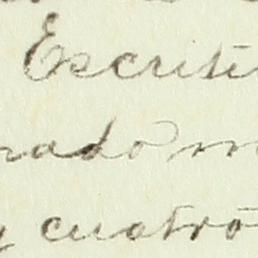 Escrite
rado m
y cuatro